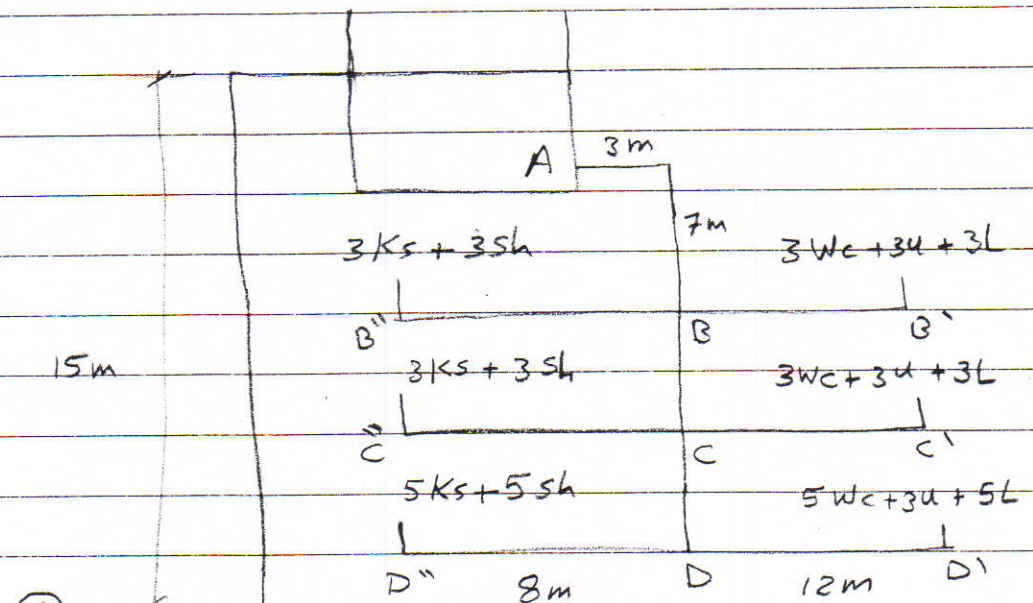 A 3m
7m
3Ks + 3Sh 3Wc + 3u + 3L
B" B B'
15m 3Ks + 3Sh 3Wc + 3u + 3L
C" C C'
5Ks + 5Sh 5Wc + 3u + 5L
D" 8m D 12m D'